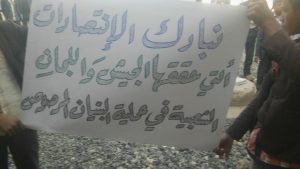 نبارك الإنتصارات
التي حققها الجيش واللجان
الشعبية في عملية البنيان المرصوص